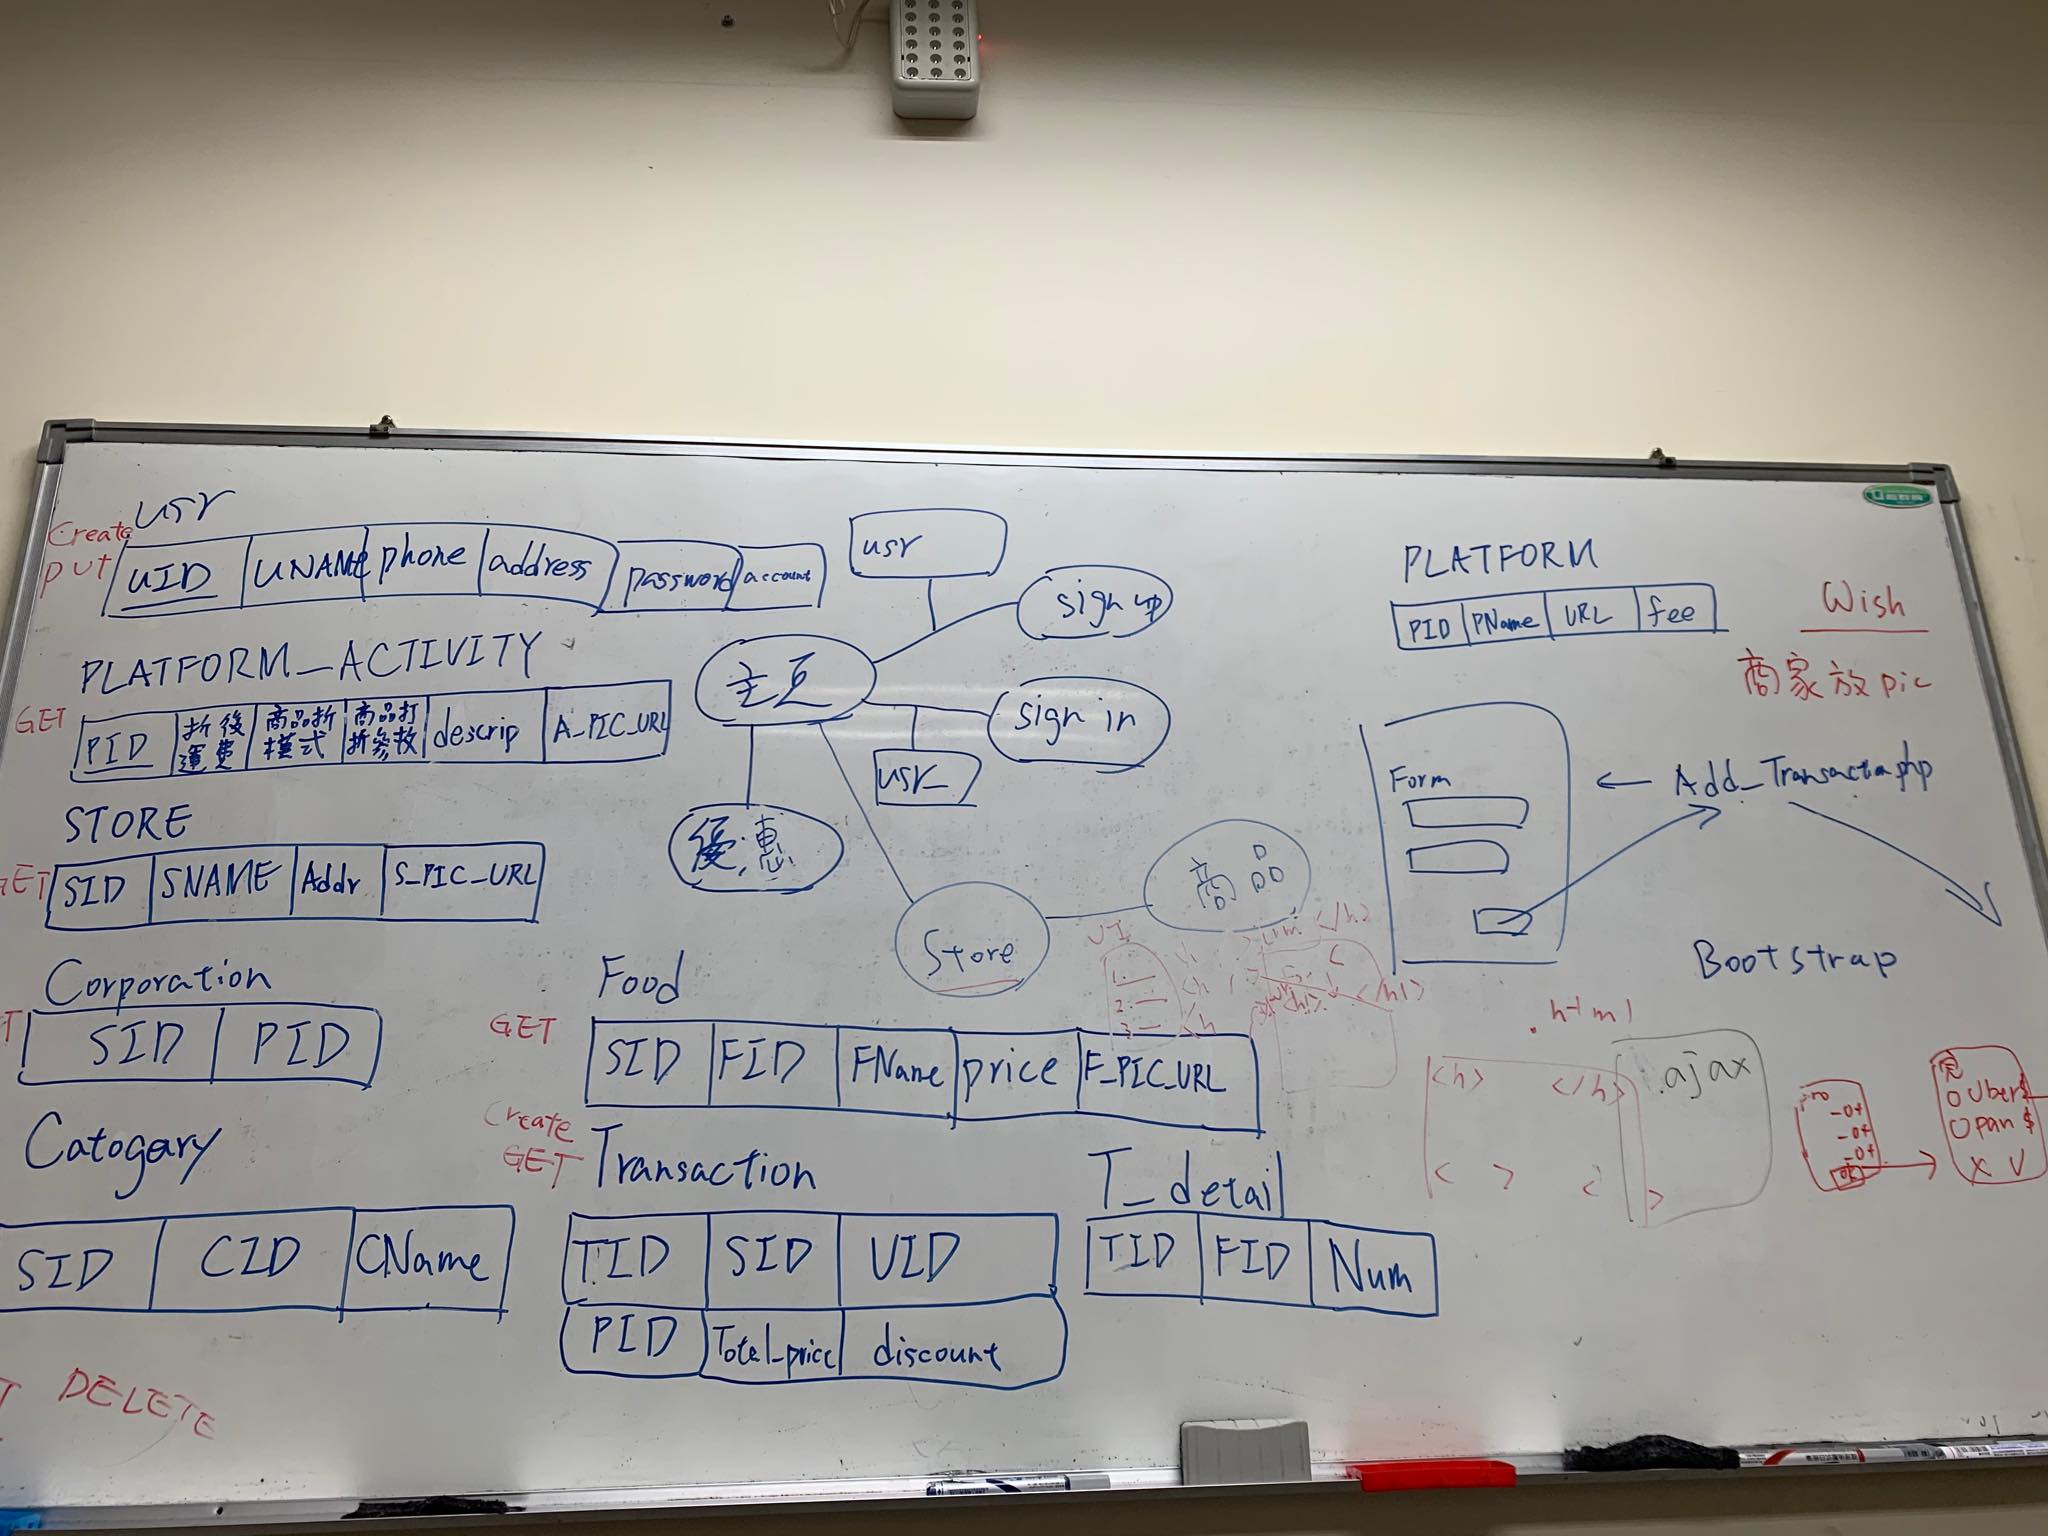 usr
Create
put
UID UNAME phone address password account
PLATFORM_ACTIVITY
GET
PID 折後運費 商品折模式 商品打折參數 descrip A_PIC_URL
STORE
GET
SID SNAME Addr S_PIC_URL
Corporation
SID PID
Catogary
SID CID CName
DELETE
usr
sign up
主頁
sign in
usr_
優惠
商品
Store
Food
GET
SID FID FName price F_PIC_URL
Create
GET
Transaction
TID SID UID
PID Total_price discount
T_detail
TID FID Num
PLATFORM
PID PName URL fee
Wish
商家放pic
Form
Add_Transacta.php
Bootstrap
UI
1.
2.
3.
</h>
<h1>
</h1>
.html
<h> </h>
< >
.ajax
-0+
-0+
-0+
ok
O Uber $
O pan $
X V